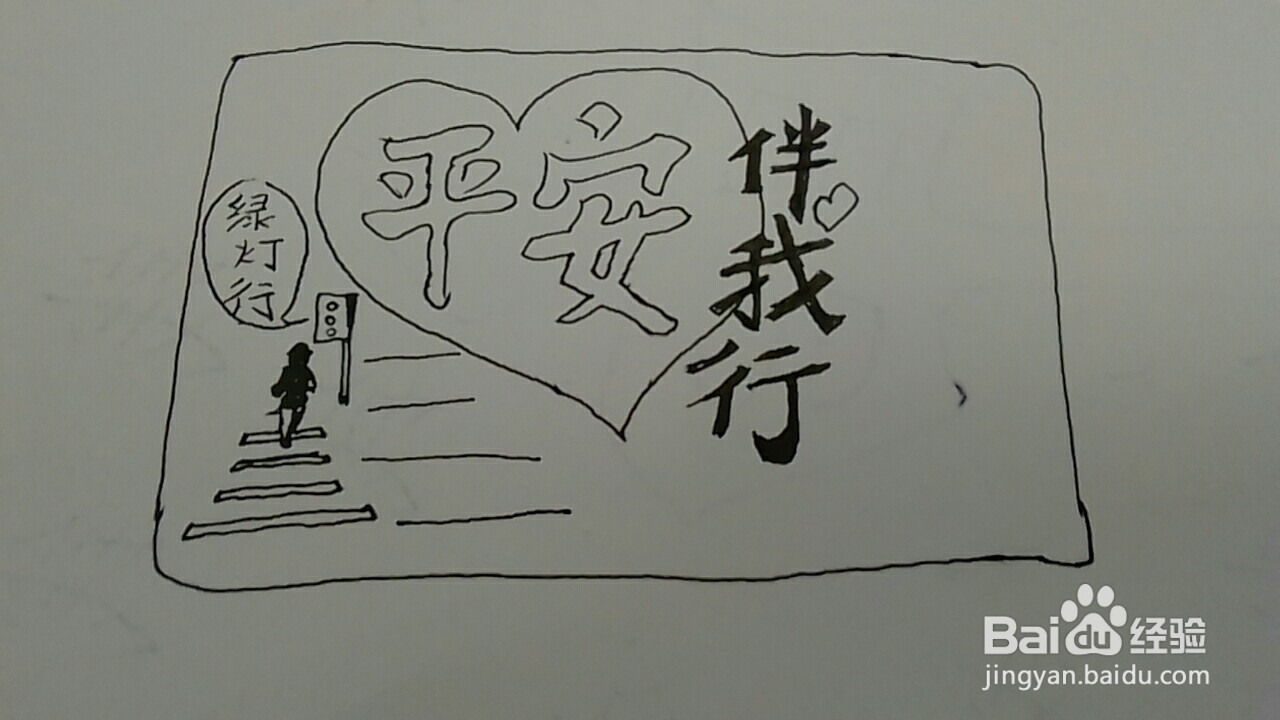 平安
伴我行
绿灯行
Baidu经验
jingyan.baidu.com